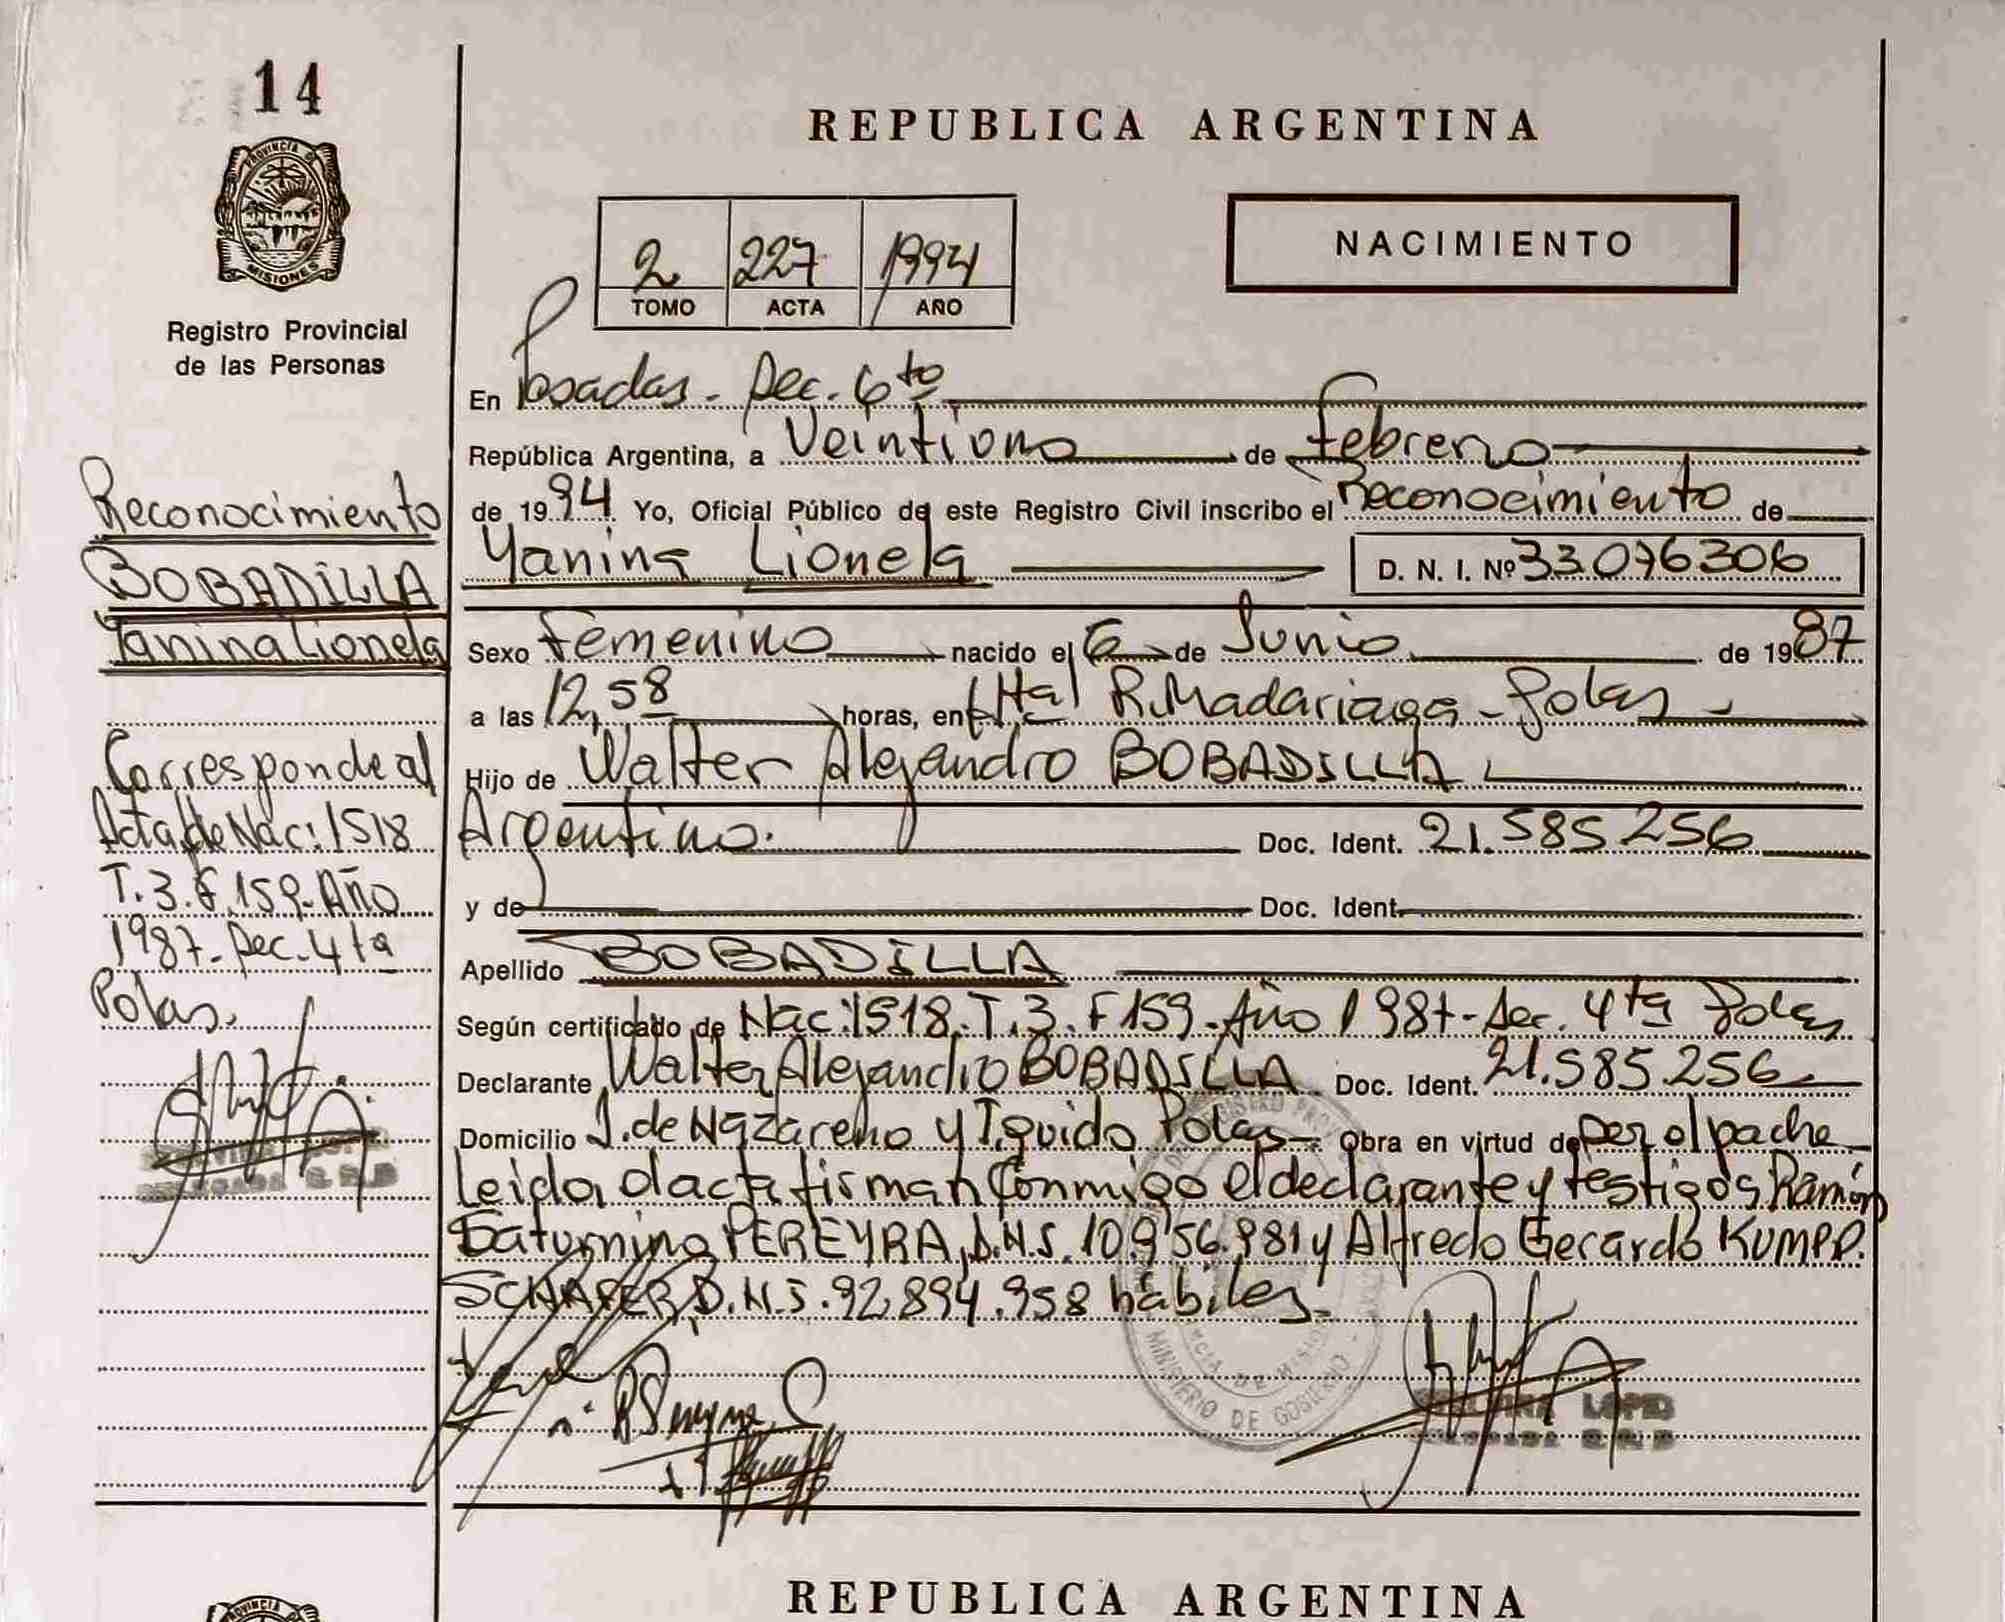 14
PROVINCIA D
MISIONES
Registro Provincial
de las Personas
Reconocimiento
BOBADILLA
Yanina Lionela
Corresponde al
Acta de Nac: 1518
T.3.F.159-Año
1987-Sec.4ta
Pdas.
REPUBLICA ARGENTINA
2 227 1994
TOMO ACTA AÑO
NACIMIENTO
En Posadas. Sec. 6to
República Argentina, a Veintiuno de Febrero
de 1994 Yo, Oficial Público de este Registro Civil inscribo el Reconocimiento de
Yanina Lionela D. N. I. Nº 33076306
Sexo Femenino nacido el 6 de Junio de 1987
a las 12,58 horas, en Htal R. Madariaga - Pdas -
Hijo de Walter Alejandro BOBADILLA
Argentino. Doc. Ident. 21.585.256
y de Doc. Ident.
Apellido BOBADILLA
Según certificado de Nac: 1518. T.3. F159-Año 1987-Sec. 4ta Pdas
Declarante Walter Alejandro BOBADILLA Doc. Ident. 21.585.256
Domicilio J. de Nazareno y Iguido Pdas Obra en virtud de
Leida el acta firman conmigo el declarante y testigos Ramón
Saturnino PEREYRA, D.N.I. 10.956.981 y Alfredo Gerardo KUMPP.
SCHAFER D.N.I. 92.894.958 hábiles.
MINISTERIO DE GOBIERNO
LOPES
REPUBLICA ARGENTINA